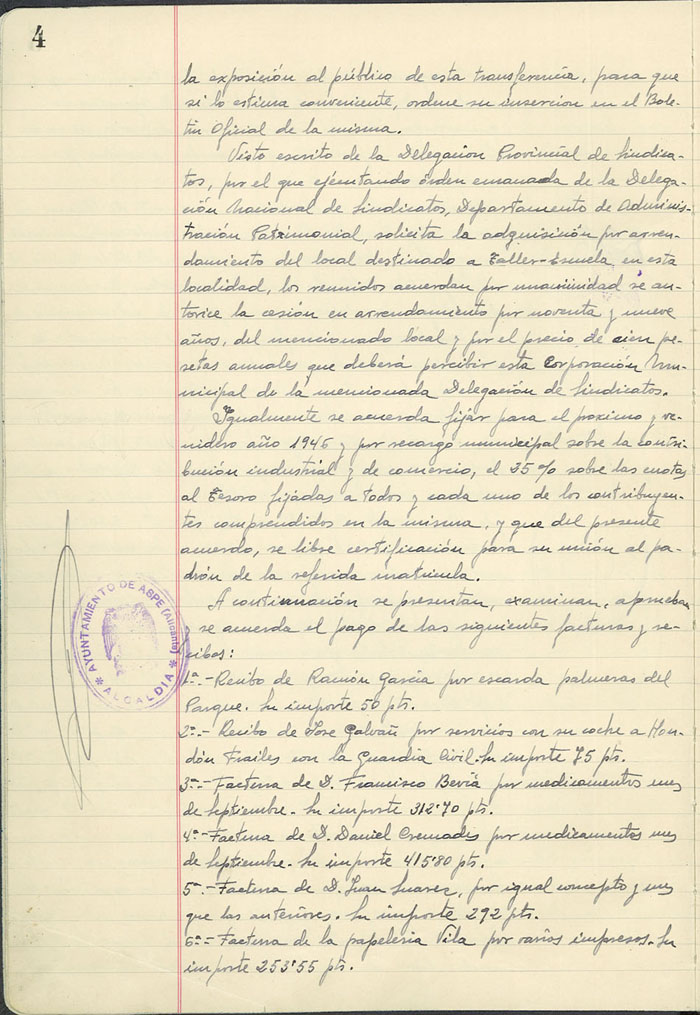 4
la exposición al público de esta transferencia, para que
si lo estima conveniente, ordene su inserción en el Bole-
tín Oficial de la misma.
Visto escrito de la Delegación Provincial de Sindica-
tos, por el que ejecutando órden emanada de la Delega-
ción Nacional de Sindicatos, Departamento de Adminis-
tración Patrimonial, solicita la adquisición por arren-
damiento del local destinado a Taller-Escuela en esta
localidad, los reunidos acuerdan por unanimidad se au-
torice la cesión en arrendamiento por noventa y nueve
años, del mencionado local y por el precio de cien pe-
setas anuales que deberá percibir esta Corporación Mu-
nicipal de la mencionada Delegación de Sindicatos.
Igualmente se acuerda fijár para el proximo y ve-
nidero año 1946 y por recargo municipal sobre la contri-
bución industrial y de comercio, el 35% sobre las cuotas
al Tesoro fijádas a todos y cada uno de los contribuyen-
tes comprendidos en la misma, y que del presente
acuerdo, se libre certificación para su unión al pa-
drón de la referida matricula.
A continuación se presentan, examinan, aprueban
y se acuerda el pago de las siguientes facturas y re-
cibos:
1ª.- Recibo de Ramón García por escarda palmeras del
Parque. Su importe 50 pts.
2ª.- Recibo de José Galvañ por servicios con su coche a Hon-
dón Frailes con la Guardia Civil. Su importe 75 pts.
3ª.- Factura de D. Francisco Beviá por medicamentos mes
de Septiembre. Su importe 312'70 pts.
4ª.- Factura de D. Daniel Cremades por medicamentos mes
de Septiembre. Su importe 415'80 pts.
5ª.- Factura de D. Juan Suarez, por igual concepto y mes
que las anteriores. Su importe 292 pts.
6ª.- Factura de la papeleria Vila por varios impresos. Su
importe 253'55 pts.
AYUNTAMIENTO DE ASPE (Alicante)
* ALCALDIA *